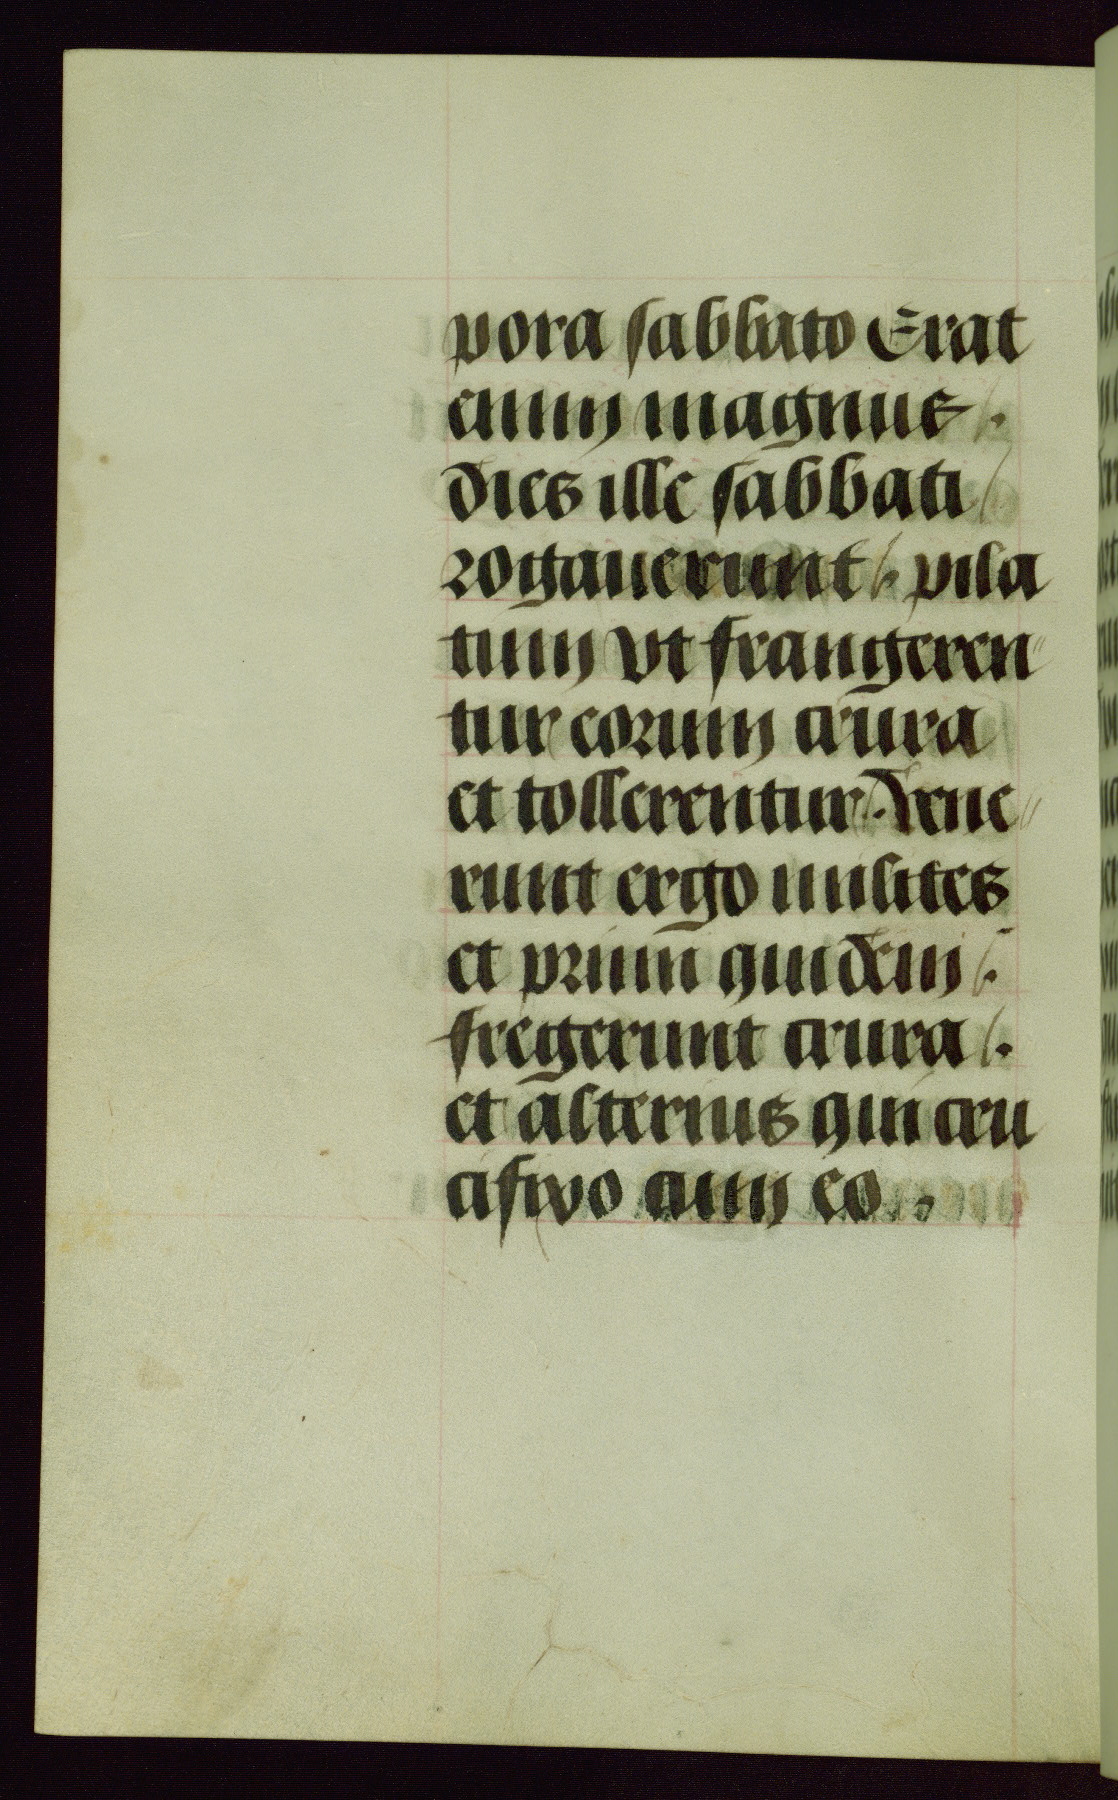 pora sabbato Erat
enim magnus
dies ille sabbati
rogauerunt pila
tum vt frangeren
tur eorum crura
et tollerentur. Vene
runt ergo milites
et primi quidem
fregerunt crura
et alterius qui cru
cifixo cum eo.